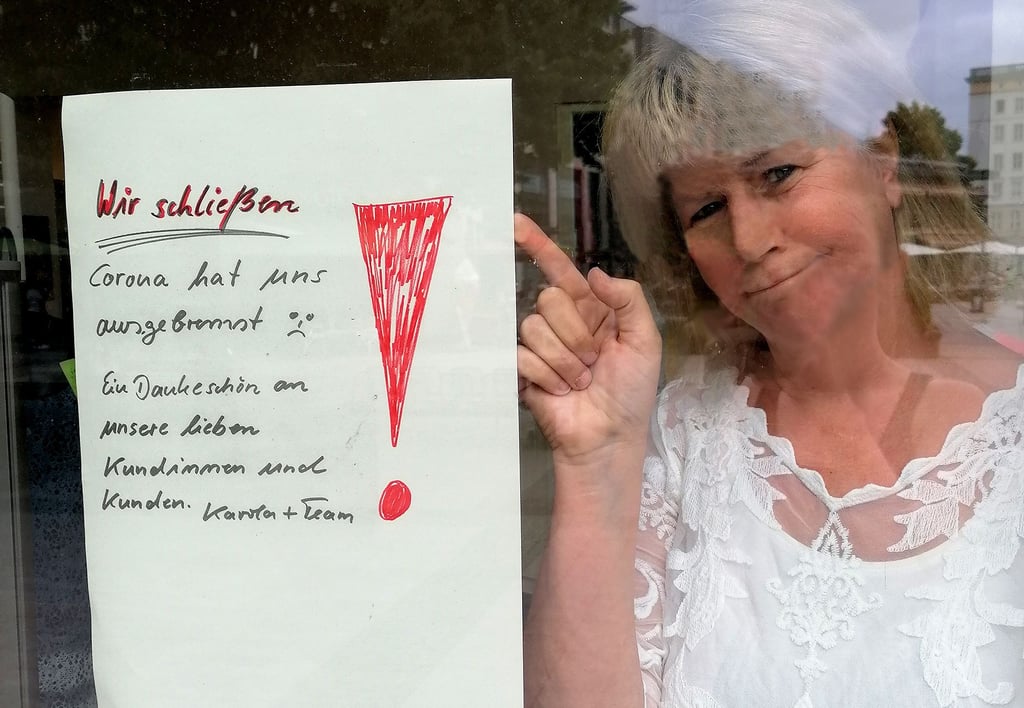 Wir schließen
Corona hat uns
ausgebremst
Ein Dankeschön an
unsere lieben
Kundinnen und
Kunden. Karola + Team
!